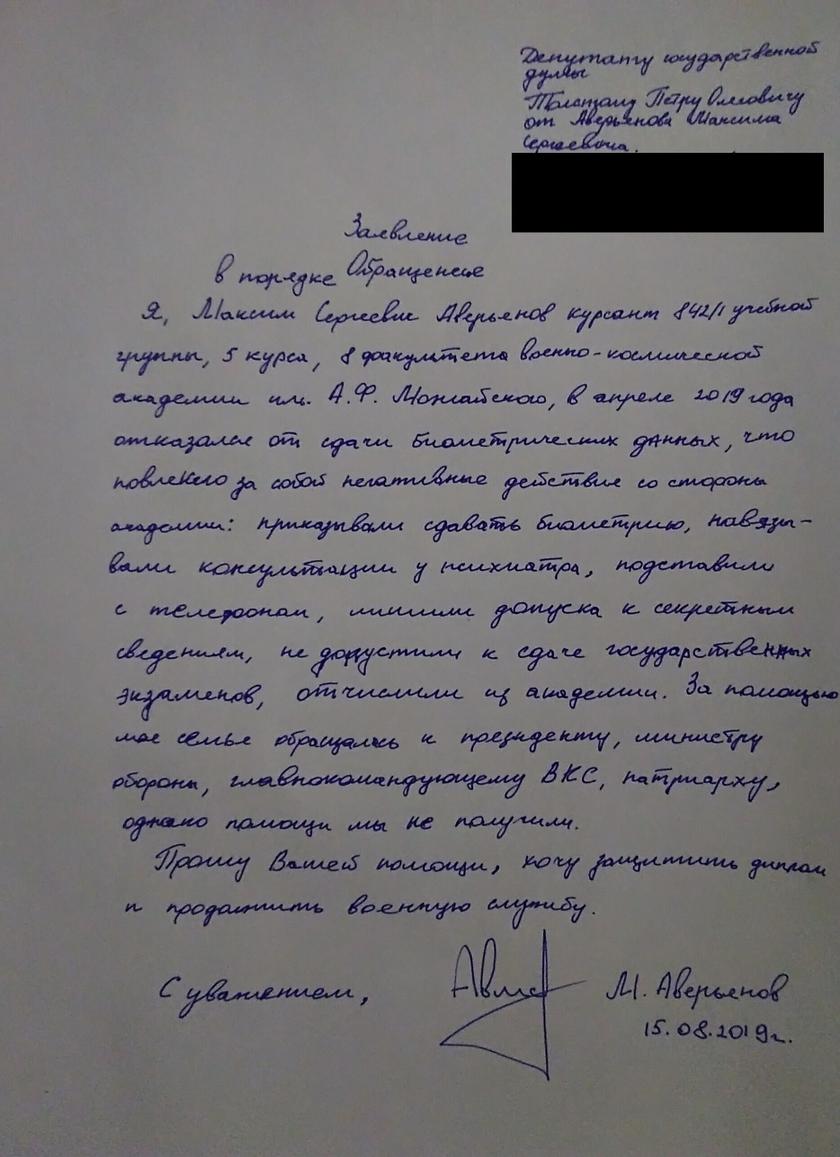 Депутату государственной
думы
Толстому Петру Олеговичу
от Аверьянова Максима
Сергеевича.
Заявление
в порядке Обращения
Я, Максим Сергеевич Аверьянов курсант 842/1 учебной
группы, 5 курса, 8 факультета военно-космической
академии им. А.Ф. Можайского, в апреле 2019 года
отказался от сдачи биометрических данных, что
повлекло за собой негативные действия со стороны
академии: приказывали сдавать биометрию, навязы-
вали консультации у психиатра, подставили
с телефоном, лишили допуска к секретным
сведениям, не допустили к сдаче государственных
экзаменов, отчислили из академии. За помощью
моя семья обращалась к президенту, министру
обороны, главнокомандующему ВКС, патриарху,
однако помощи мы не получили.
Прошу Вашей помощи, хочу защитить диплом
и продолжить военную службу.
С уважением,
М. Аверьянов
15.08.2019г.